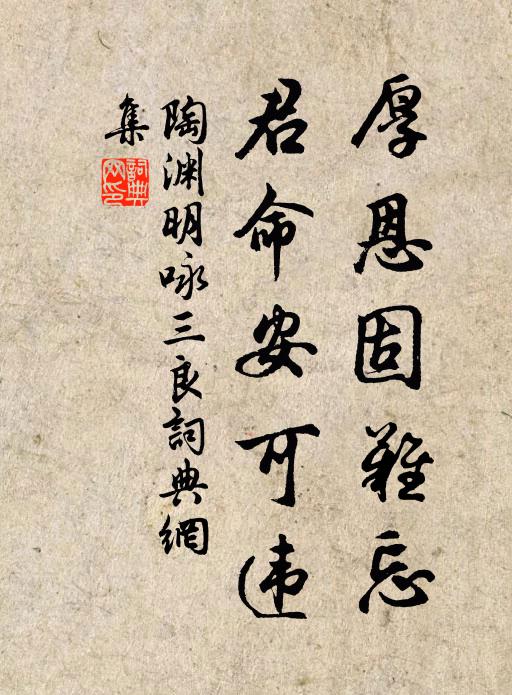 厚恩固難忘
君命安可违
陶渊明咏三良詞典網
集
詞典網印